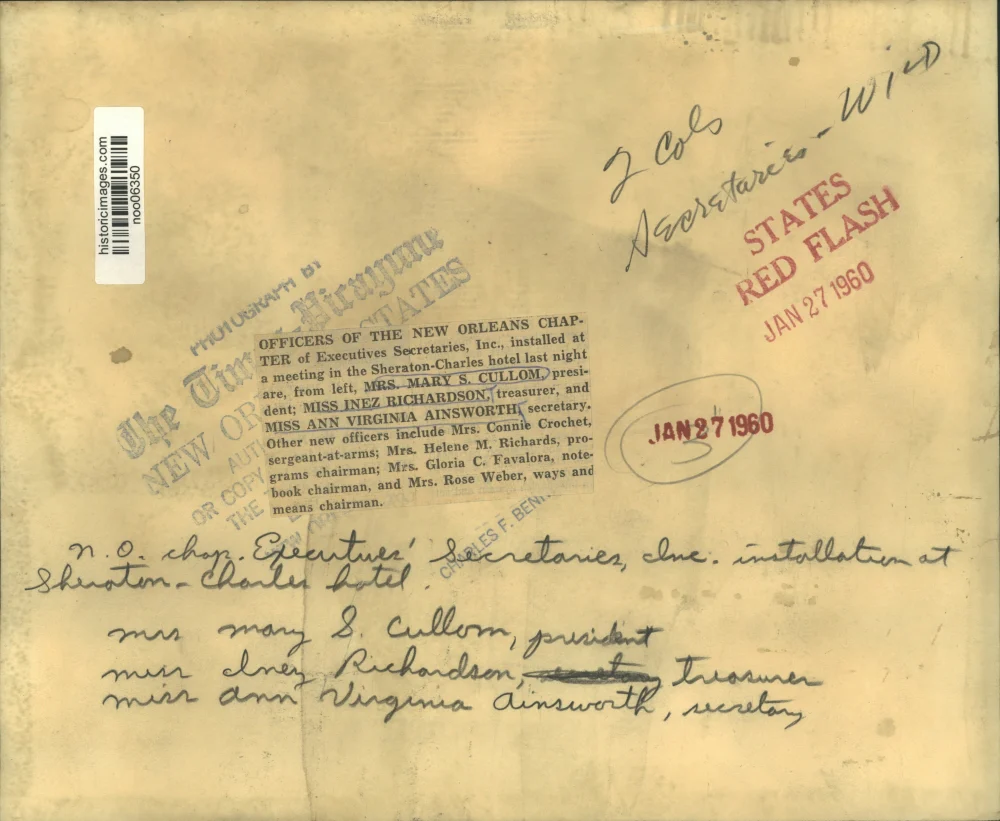 historicimages.com
noo06350
2 Cols
Secretaries - Wild
STATES
RED FLASH
JAN 27 1960
PHOTOGRAPH BY
The Times-Picayune
NEW OR
STATES
AUT
OR COPY
THE
OFFICERS OF THE NEW ORLEANS CHAP-
TER of Executives Secretaries, Inc., installed at
a meeting in the Sheraton-Charles hotel last night
are, from left, MRS. MARY S. CULLOM, presi-
dent; MISS INEZ RICHARDSON, treasurer, and
MISS ANN VIRGINIA AINSWORTH, secretary.
Other new officers include Mrs. Connie Crochet,
sergeant-at-arms; Mrs. Helene M. Richards, pro-
grams chairman; Mrs. Gloria C. Favalora, note-
book chairman, and Mrs. Rose Weber, ways and
means chairman.
JAN 27 1960
3
CHARLES F. BENN
N.O. chap. Executives' Secretaries, Inc. installation at
Sheraton-Charles hotel.
Mrs Mary S. Cullom, president
Miss Inez Richardson, treasurer
Miss Ann Virginia Ainsworth, secretary